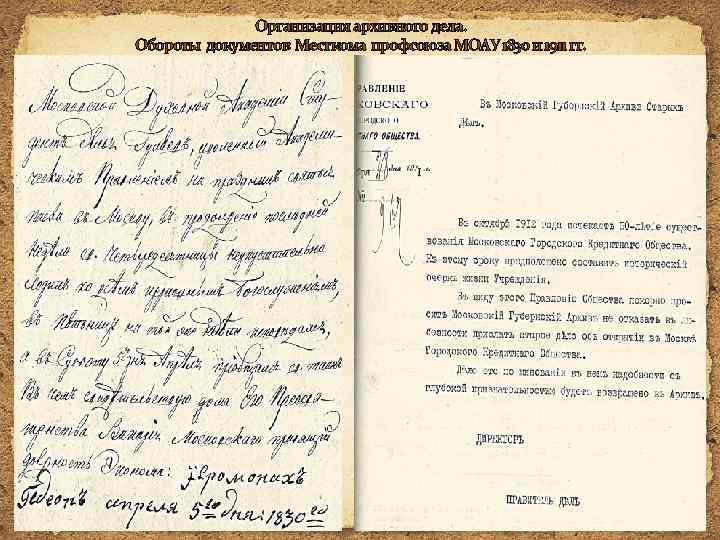 Организация архивного дела.
Обороты документов Месткома профсоюза МОАУ 1830 и 1911 гг.
Московской Духовной Академіи Сту-
дентъ Яковъ уволенный Академи-
ческимъ Правленіемъ на праздникъ святыя
пасхи въ Москву, въ продолженіе последней
недели св. Четыредесятницы неупустительно
ходилъ ко всемъ Богослуженіямъ,
въ Пятницу на той же неделе исповедался,
а въ Субботу 5 дня Апреля пріобщился св. таинъ
Въ чемъ свидетельствую дома Его Преосвя-
щенства Викарія Московскаго
должность Эконома: Іеромонахъ
Гедеонъ апреля 5го дня: 1830 го
РАВЛЕНІЕ
КОВСКАГО
ОРОДСКОГО
НАГО ОБЩЕСТВА.
№
917
Въ Московскій Губернскій Архивъ Старыхъ
Дѣлъ.
Въ октябрѣ 1912 года истекаетъ 50-лѣтіе сущест-
вованія Московскаго Городского Кредитнаго Общества.
Къ этому сроку предположено составить историческій
очеркъ жизни Учрежденія.
Въ виду этого Правленіе Общества покорно про-
ситъ Московскій Губернскій Архивъ не отказать въ лю-
безности прислать старое дѣло объ открытіи въ Москвѣ
Городского Кредитнаго Общества.
Дѣло это по минованіи въ немъ надобности съ
глубокой признательностью будетъ возвращено въ Архивъ.
ДИРЕКТОРЪ
ПРАВИТЕЛЬ ДѢЛЪ